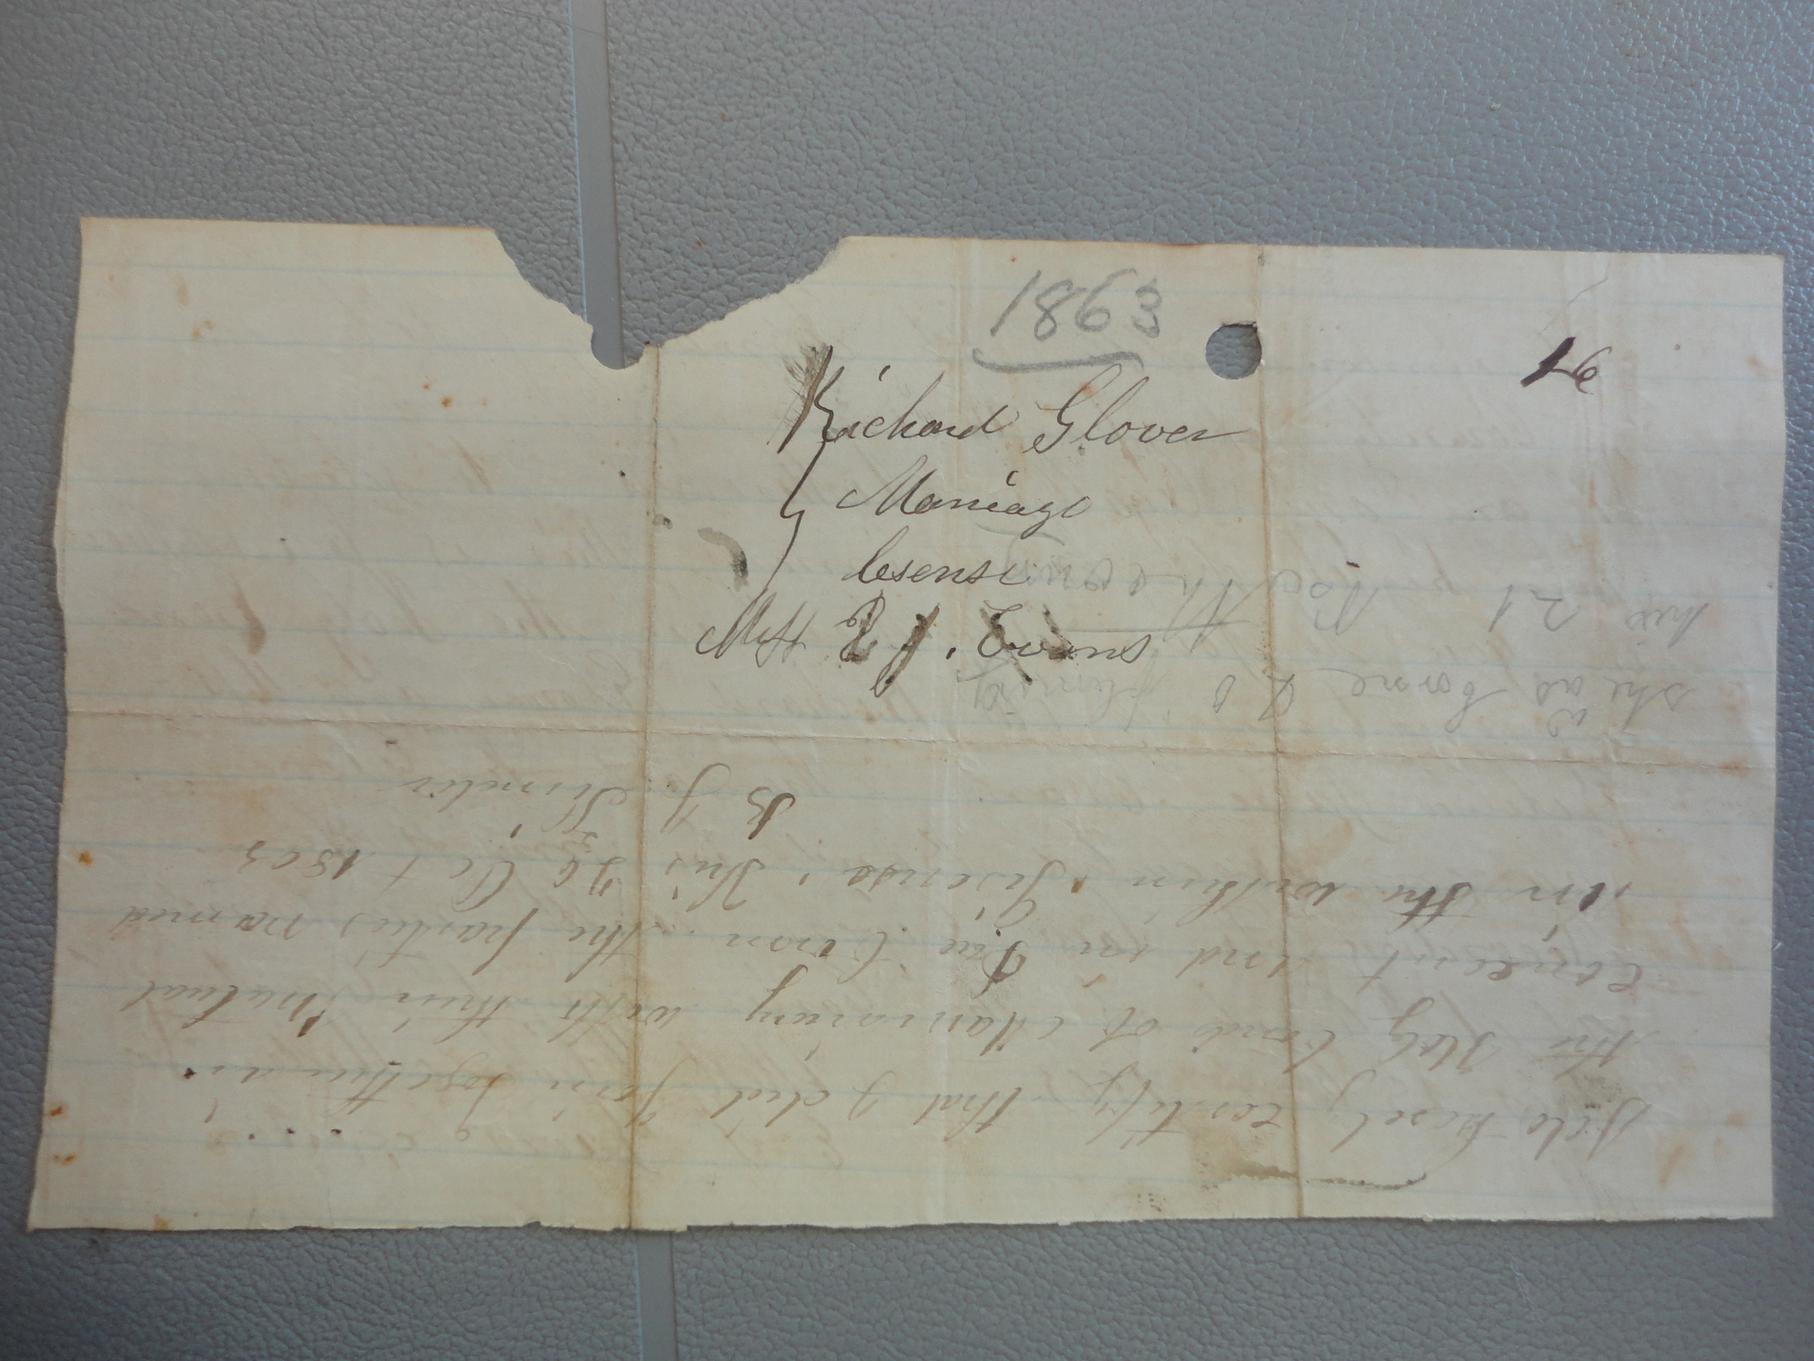 1863
16
Richard Glover
Marriage
Lesense
E J. Evans
she as borne
his 21
I do herely certify that I did join together in
the Holy bonds of Matrimony with their Mutual
concent and in Due Form the parties named
in the within Lisense. This 26 Oct 1863
B J